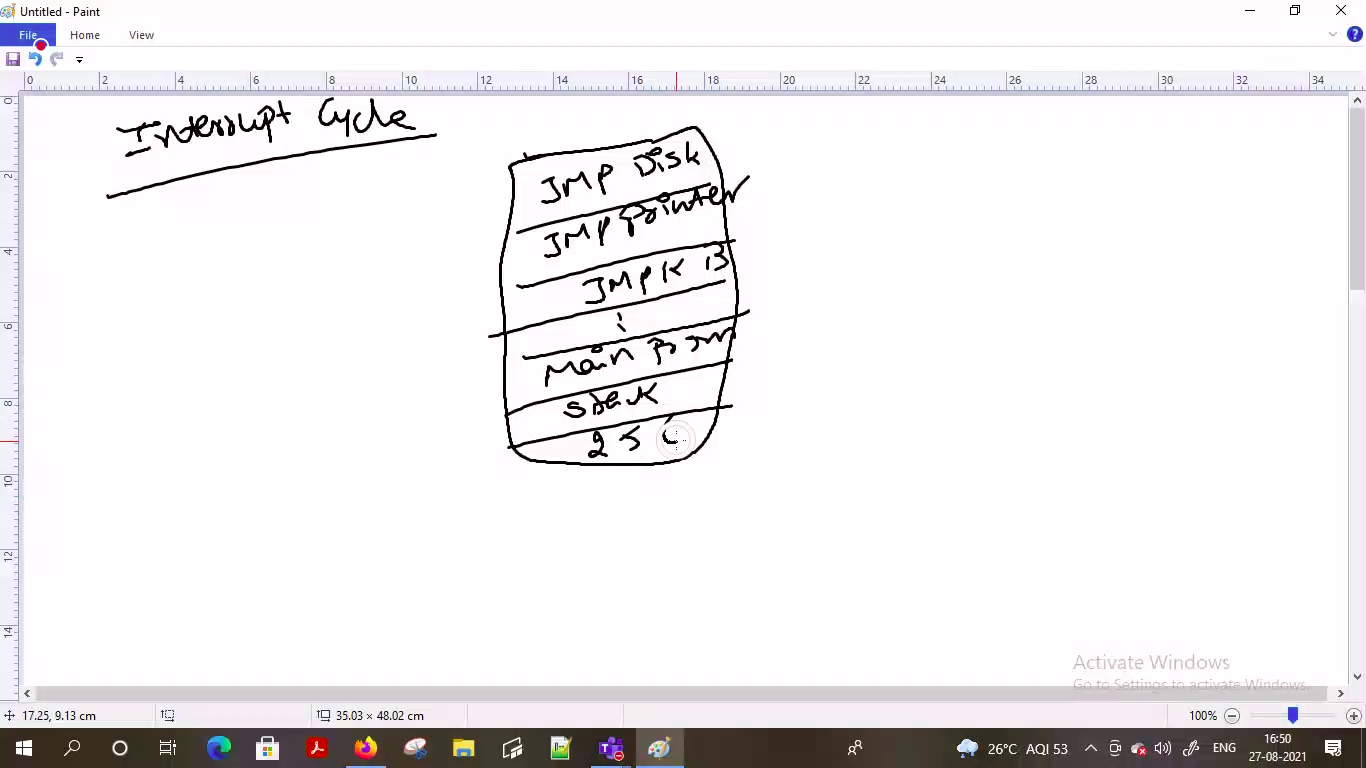 Untitled - Paint
File Home View
0 2 4 6 8 10 12 14 16 18 20 22 24 26 28 30 32 34
0
2
4
6
8
10
12
14
Interrupt Cycle
JMP Disk
JMP Printer
JMP K B
Main
Stack
25
Activate Windows
Go to Settings to activate Windows.
17.25, 9.13 cm
35.03 × 48.02 cm
100%
26°C AQI 53
ENG
16:50
27-08-2021